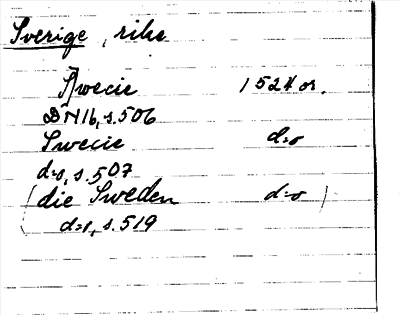 Sverige, rike
Swecie 1524 or.
DN16, s. 506
Swecie d:o
d:o, s. 507
(die Sweden d:o)
d:o, s. 519